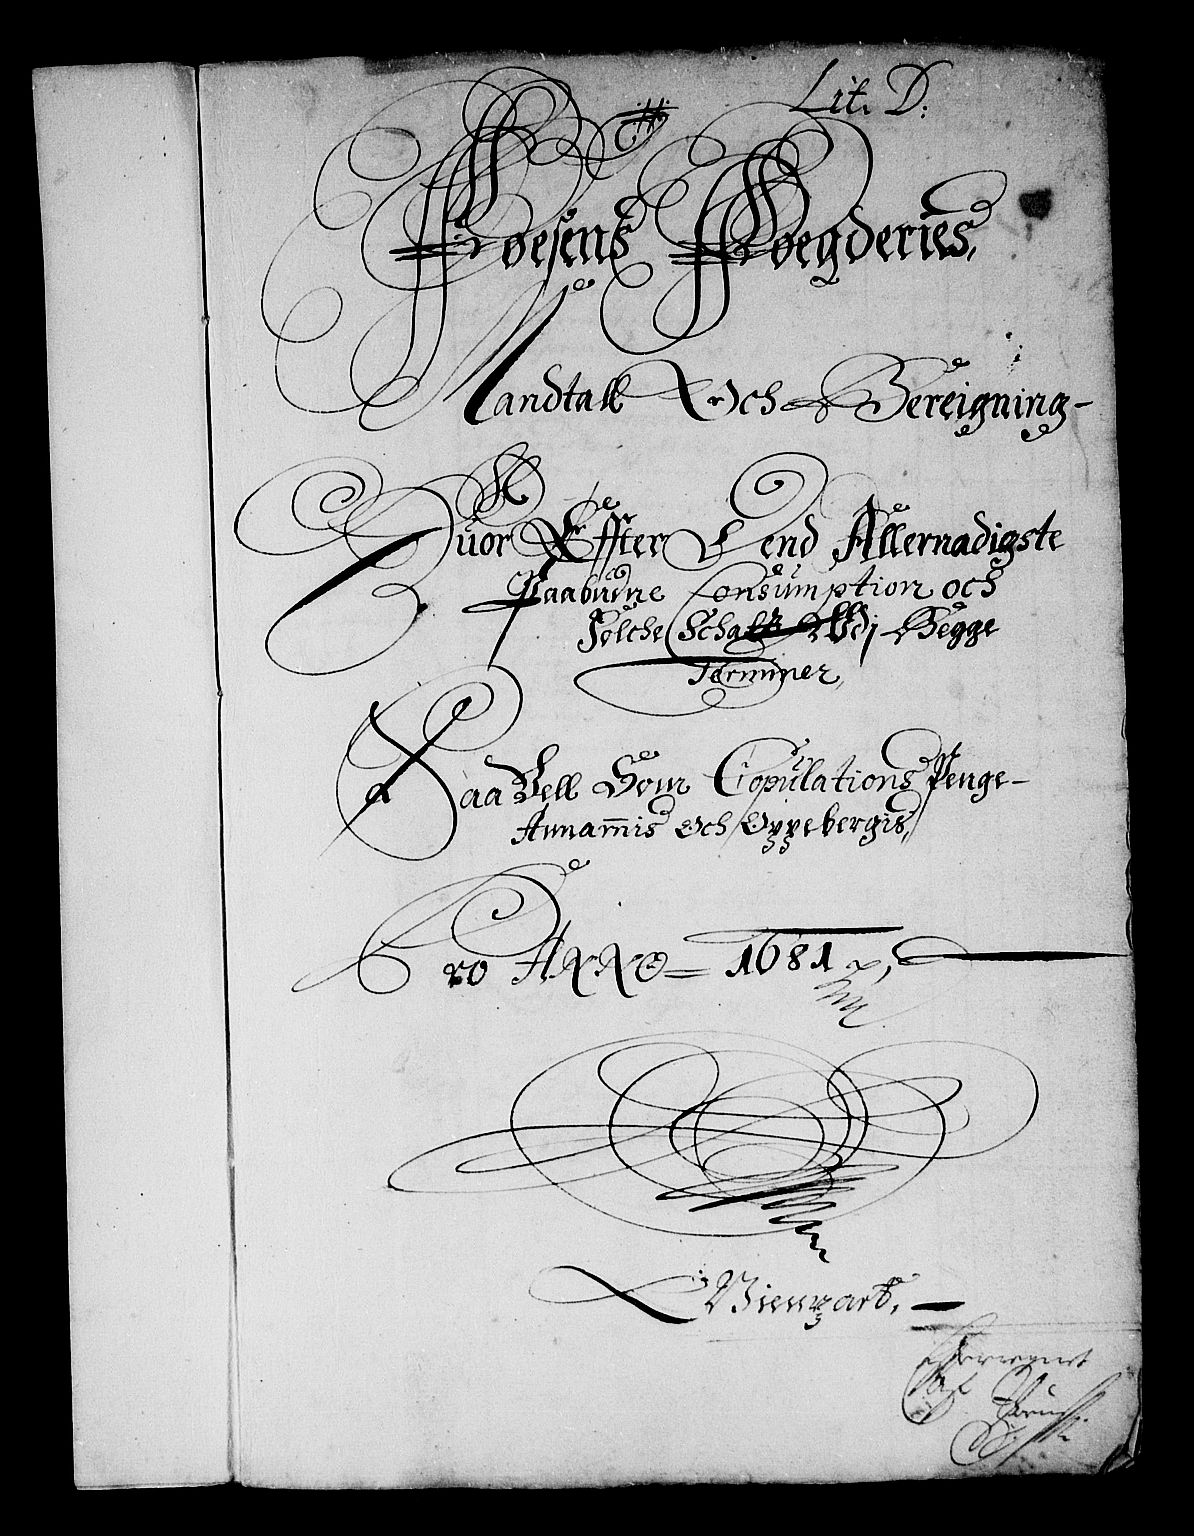 Lit. D:
Foesens Foegderies,
Mandtall Och Bereigning-
Huor Effter Dend Allernadigste
Paabudne Consumption och
Folche Schatt Udj Begge
Terminer,
Saa Vell Som Copulations Penge-
Annammis Och Oppebergis,
Pro ANNO = 1681